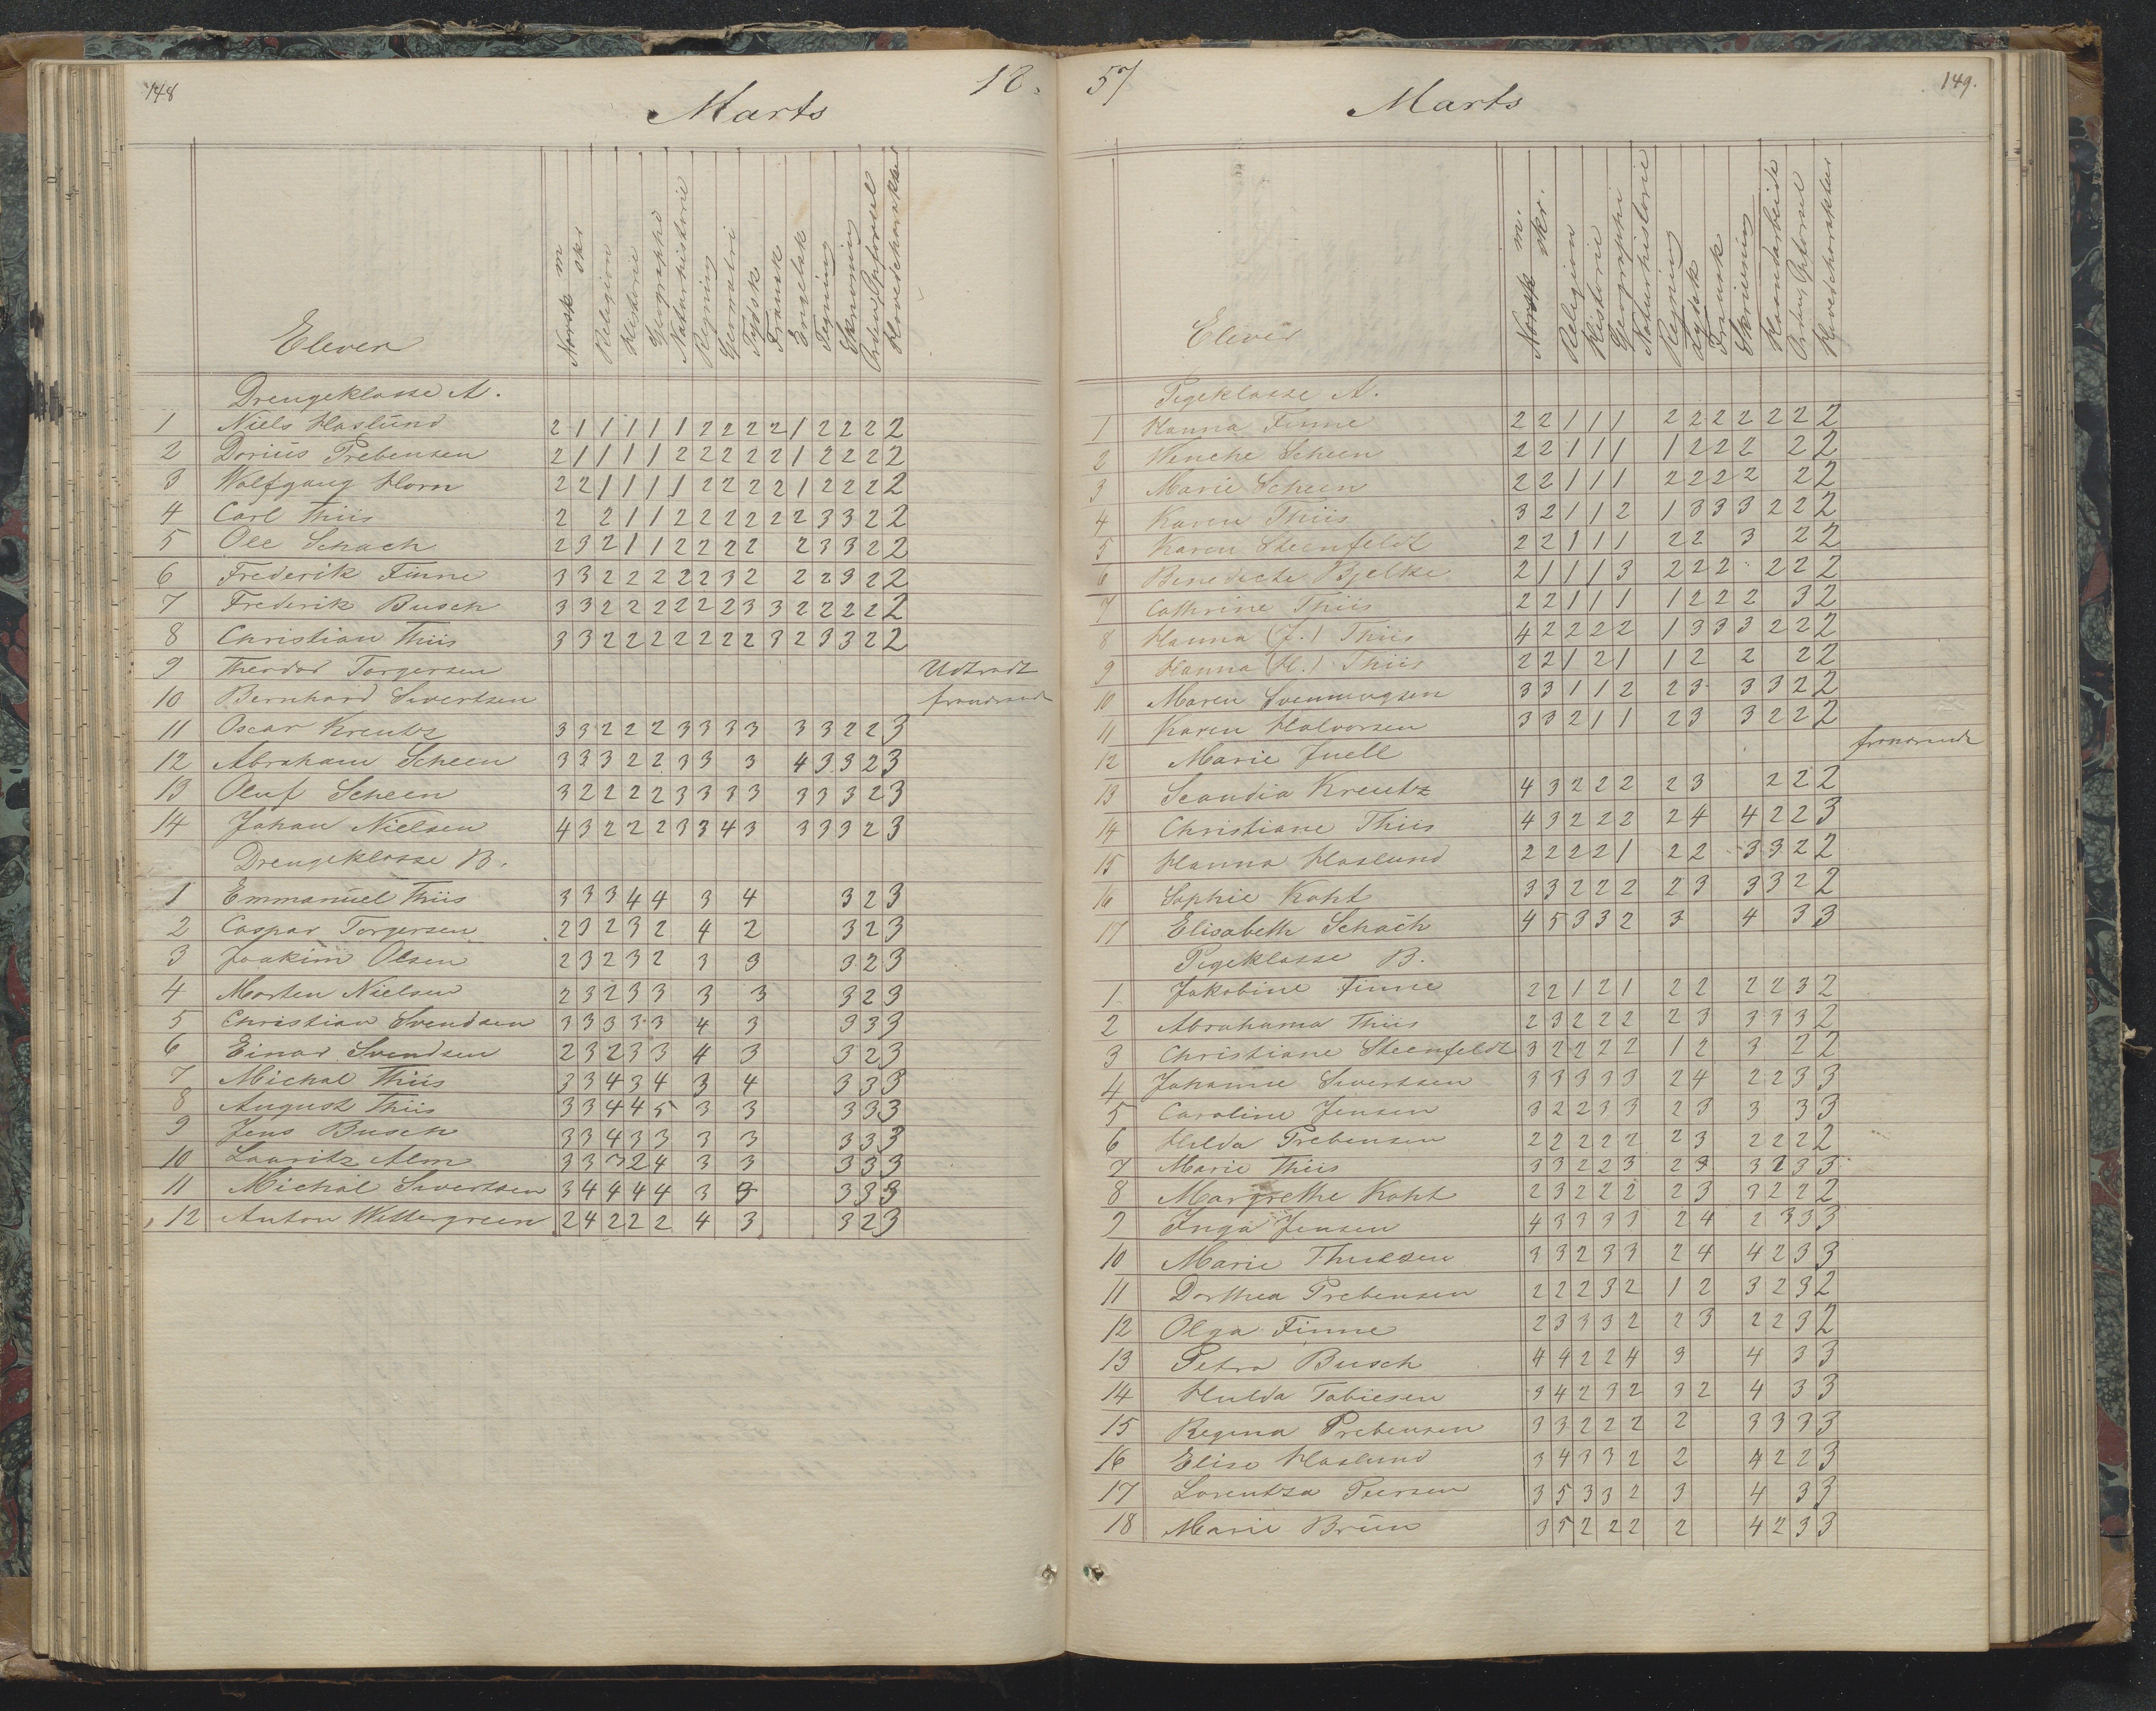 148
18.
Marts
Elever
Norsk m
skr
Religion
Historie
Geographi
Naturhistorie
Regning
Geometri
Tydsk
Fransk
Engelsk
Tegning
Skrivning
Orden, Opførsel
Hovedcharakter
Drengeklasse A.
1 Niels Haslund 2 1 1 1 1 1 2 2 2 2 1 2 2 2 2
2 Dorius Prebensen 2 1 1 1 1 2 2 2 2 2 1 2 2 2 2
3 Wolfgang Horn 2 2 1 1 1 1 2 2 2 2 1 2 2 2 2
4 Carl Thiis 2 2 1 1 2 2 2 2 2 2 3 3 2 2
5 Ole Schach 2 3 2 1 1 2 2 2 2 2 3 3 2 2
6 Frederik Finne 3 3 2 2 2 2 2 3 2 2 2 3 2 2
7 Frederik Busch 3 3 2 2 2 2 2 2 3 3 2 2 2 2 2
8 Christian Thiis 3 3 2 2 2 2 2 2 2 3 2 3 3 2 2
9 Theodor Torgersen Udtraadt
10 Bernhard Sivertsen fraværende
11 Oscar Kreutz 3 3 2 2 2 2 3 3 3 3 3 3 2 2 3
12 Abraham Scheen 3 3 3 2 2 3 3 3 4 3 3 2 3
13 Oluf Scheen 3 2 2 2 2 3 3 3 3 3 3 3 2 3
14 Johan Nielsen 4 3 2 2 2 2 3 3 4 3 3 3 3 2 3
Drengeklasse B.
1 Emmanuel Thiis 3 3 3 4 4 3 4 3 2 3
2 Caspar Torgersen 2 3 2 3 2 4 2 3 2 3
3 Joakim Olsen 2 3 2 3 2 3 3 3 2 3
4 Morten Nielsen 2 3 2 3 3 3 3 3 2 3
5 Christian Svendsen 3 3 3 3 3 4 3 3 3 3
6 Einar Svendsen 2 3 2 3 3 4 3 3 2 3
7 Michal Thiis 3 3 4 3 4 3 4 3 3 3
8 August Thiis 3 3 4 4 5 3 3 3 3 3
9 Jens Busch 3 3 4 3 3 3 3 3 3 3
10 Lauritz Alm 3 3 3 2 4 3 3 3 3 3
11 Michal Sivertsen 3 4 4 4 4 3 3 3 3 3
12 Anton Wettergreen 2 4 2 2 2 4 3 3 2 3
57
149.
Marts
Elever
Norsk m.
skr.
Religion
Historie
Geographi
Naturhistorie
Regning
Tydsk
Fransk
Skrivning
Haandarbeide
Orden, Opførsel
Hovedcharakter
Pigeklasse A.
1 Hanna Finne 2 2 1 1 1 2 2 2 2 2 2 2
2 Wenche Scheen 2 2 1 1 1 1 2 2 2 2 2
3 Marie Scheen 2 2 1 1 1 2 2 2 2 2 2
4 Karen Thiis 3 2 1 1 2 1 3 3 3 2 2 2
5 Karen Steenfeldt 2 2 1 1 1 2 2 3 2 2
6 Benedicte Bjelke 2 1 1 1 3 2 2 2 2 2 2
7 Cathrine Thiis 2 2 1 1 1 1 2 2 2 3 2
8 Hanna (J.) Thiis 4 2 2 2 2 1 3 3 3 2 2 2
9 Hanna (H.) Thiis 2 2 1 2 1 1 2 2 2 2
10 Maren Svennungsen 3 3 1 1 2 2 3 3 3 2 2
11 Karen Halvorsen 3 3 2 1 1 2 3 3 2 2 2
12 Marie Juell fraværende
13 Scandia Kreutz 4 3 2 2 2 2 3 2 2 2
14 Christiane Thiis 4 3 2 2 2 2 4 4 2 2 3
15 Hanna Haslund 2 2 2 2 1 2 2 3 3 2 2
16 Sophie Koht 3 3 2 2 2 2 3 3 3 2 2
17 Elisabeth Schach 4 5 3 3 2 3 4 3 3
Pigeklasse B.
1 Jakobine Finne 2 2 1 2 1 2 2 2 2 3 2
2 Abrahama Thiis 2 3 2 2 2 2 3 3 3 3 2
3 Christiane Steenfeldt 3 2 2 2 2 1 2 3 2 2
4 Johanne Sivertsen 3 3 3 3 3 2 4 2 2 3 3
5 Caroline Jensen 3 2 2 3 3 2 3 3 3 3
6 Hilda Prebensen 2 2 2 2 2 2 3 2 2 2 2
7 Marie Thiis 3 3 2 2 3 2 3 3 2 3 3
8 Margrethe Koht 2 3 2 2 2 2 3 3 2 2 2
9 Inga Jensen 4 3 3 3 3 2 4 2 3 3 3
10 Marie 3 3 2 3 3 2 4 4 2 3 3
11 Dorthea Prebensen 2 2 2 3 2 1 2 3 2 3 2
12 Olga Finne 2 3 3 3 2 2 3 2 2 3 2
13 Petra Busch 4 4 2 2 4 3 4 3 3
14 Hulda Tobiesen 3 4 2 3 2 3 2 4 3 3
15 Regina Prebensen 3 3 2 2 2 2 3 3 3 3
16 Elise Haslund 3 4 3 3 2 2 4 2 2 3
17 Lorentza Peersen 3 5 3 3 2 3 4 3 3
18 Marie Bruun 3 5 2 2 2 2 4 2 3 3